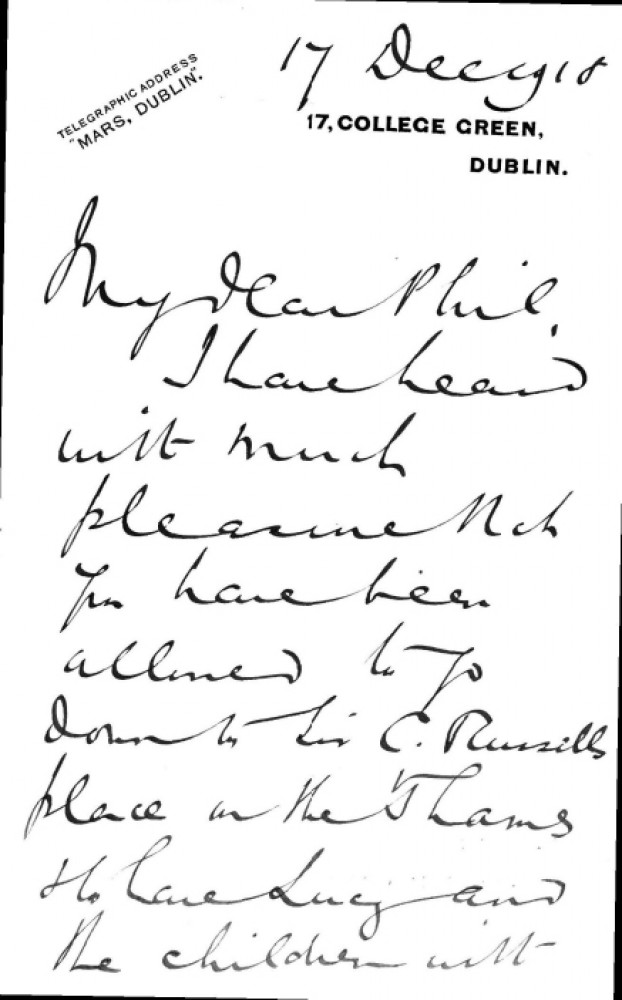 17 Dec 1918
TELEGRAPHIC ADDRESS
"MARS, DUBLIN".
17, COLLEGE GREEN,
DUBLIN.
My dear Phil,
I have heard
with much
pleasure that
you have been
allowed to go
down to Sir C. Russells
place on the Thames
& to have Lucy and
the children with